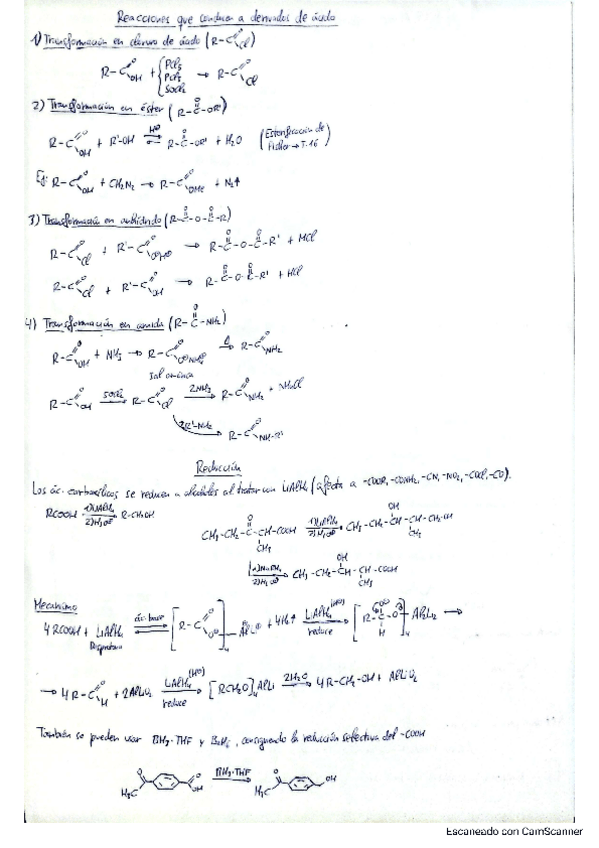 Reacciones que conducen a derivados de ácido
1) Transformación en cloruro de ácido (R-C=O Cl)
R-C=O OH + { PCl5 PCl3 SOCl2 → R-C=O Cl
2) Transformación en éster (R-C(=O)-OR')
R-C=O OH + R'-OH ⇌ R-C(=O)-OR' + H2O (Esterificación de Fisher → T.16)
Ej: R-C=O OH + CH2N2 → R-C=O OMe + N2↑
3) Transformación en anhídrido (R-C(=O)-O-C(=O)-R)
R-C=O Cl + R'-C=O → R-C(=O)-O-C(=O)-R' + MCl
R-C=O Cl + R'-C=O OH → R-C(=O)-O-C(=O)-R' + HCl
4) Transformación en amida (R-C(=O)-NH2)
R-C=O OH + NH3 → R-C=O O⊖NH4⊕ → R-C=O NH2
Sal amónica
R-C=O OH SOCl2 → R-C=O Cl 2NH3 → R-C=O NH2 + NH4Cl
2R'-NH2 → R-C=O NH-R'
Reducción
Los ác. carboxílicos se reducen a alcoholes al tratar con LiAlH4 (afecta a -COOR, -CONH2, -CN, -NO2, -COCl, -CO).
RCOOH 1) LiAlH4 2) H3O⊕ → R-CH2OH
CH3-CH2-C(=O)-CH-COOH CH3 1) LiAlH4 2) H3O⊕ → CH3-CH2-CH-CH-CH2-OH OH CH3
1) NaBH4 2) H3O⊕ → CH3-CH2-CH-CH-COOH OH CH3
Mecanismo
4 RCOOH + LiAlH4 ác-base [R-C=O O⊖]4 + 4H2↑ LiAlH4 reduce → [R-C-O H]4 AlLi2 →
→ 4 R-C=O H + 2AlLiO2 LiAlH4 reduce → [RCH2O]4AlLi 2H2O → 4R-CH2-OH + AlLiO2
También se pueden usar BH3·THF y B2H6, consiguiendo la reducción selectiva del -COOH
H3C O O OH BH3·THF → H3C O OH
Escaneado con CamScanner